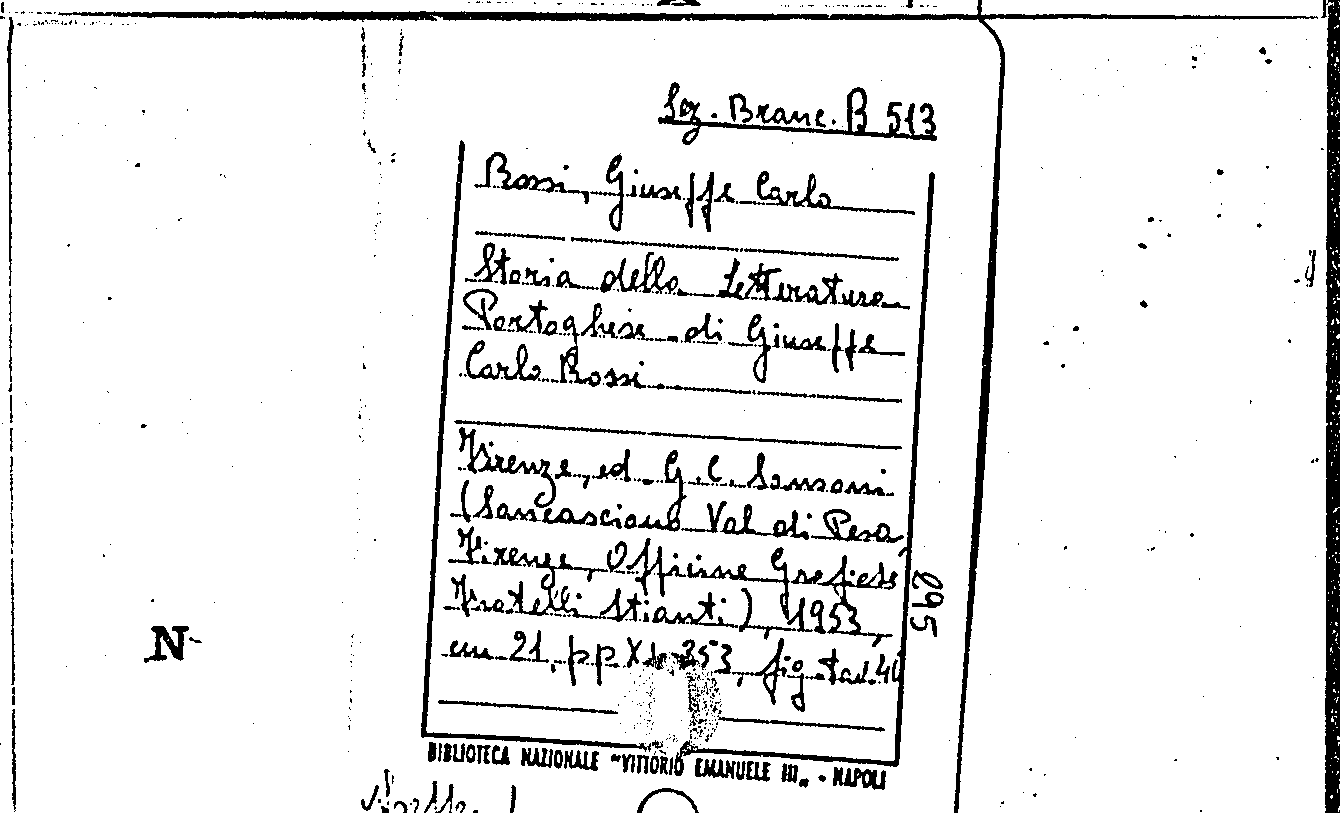 Sez. Branc. B 513
Rossi, Giuseppe Carlo
Storia della Letteratura
Portoghese di Giuseppe
Carlo Rossi.
Firenze, ed. G. C. Sansoni
(Sancasciano Val di Pesa,
Firenze, Officine Grafiche
Fratelli Stianti), 1953,
cm 21, pp 353, fig. tav.
295
BIBLIOTECA NAZIONALE "VITTORIO EMANUELE III„ - NAPOLI
N